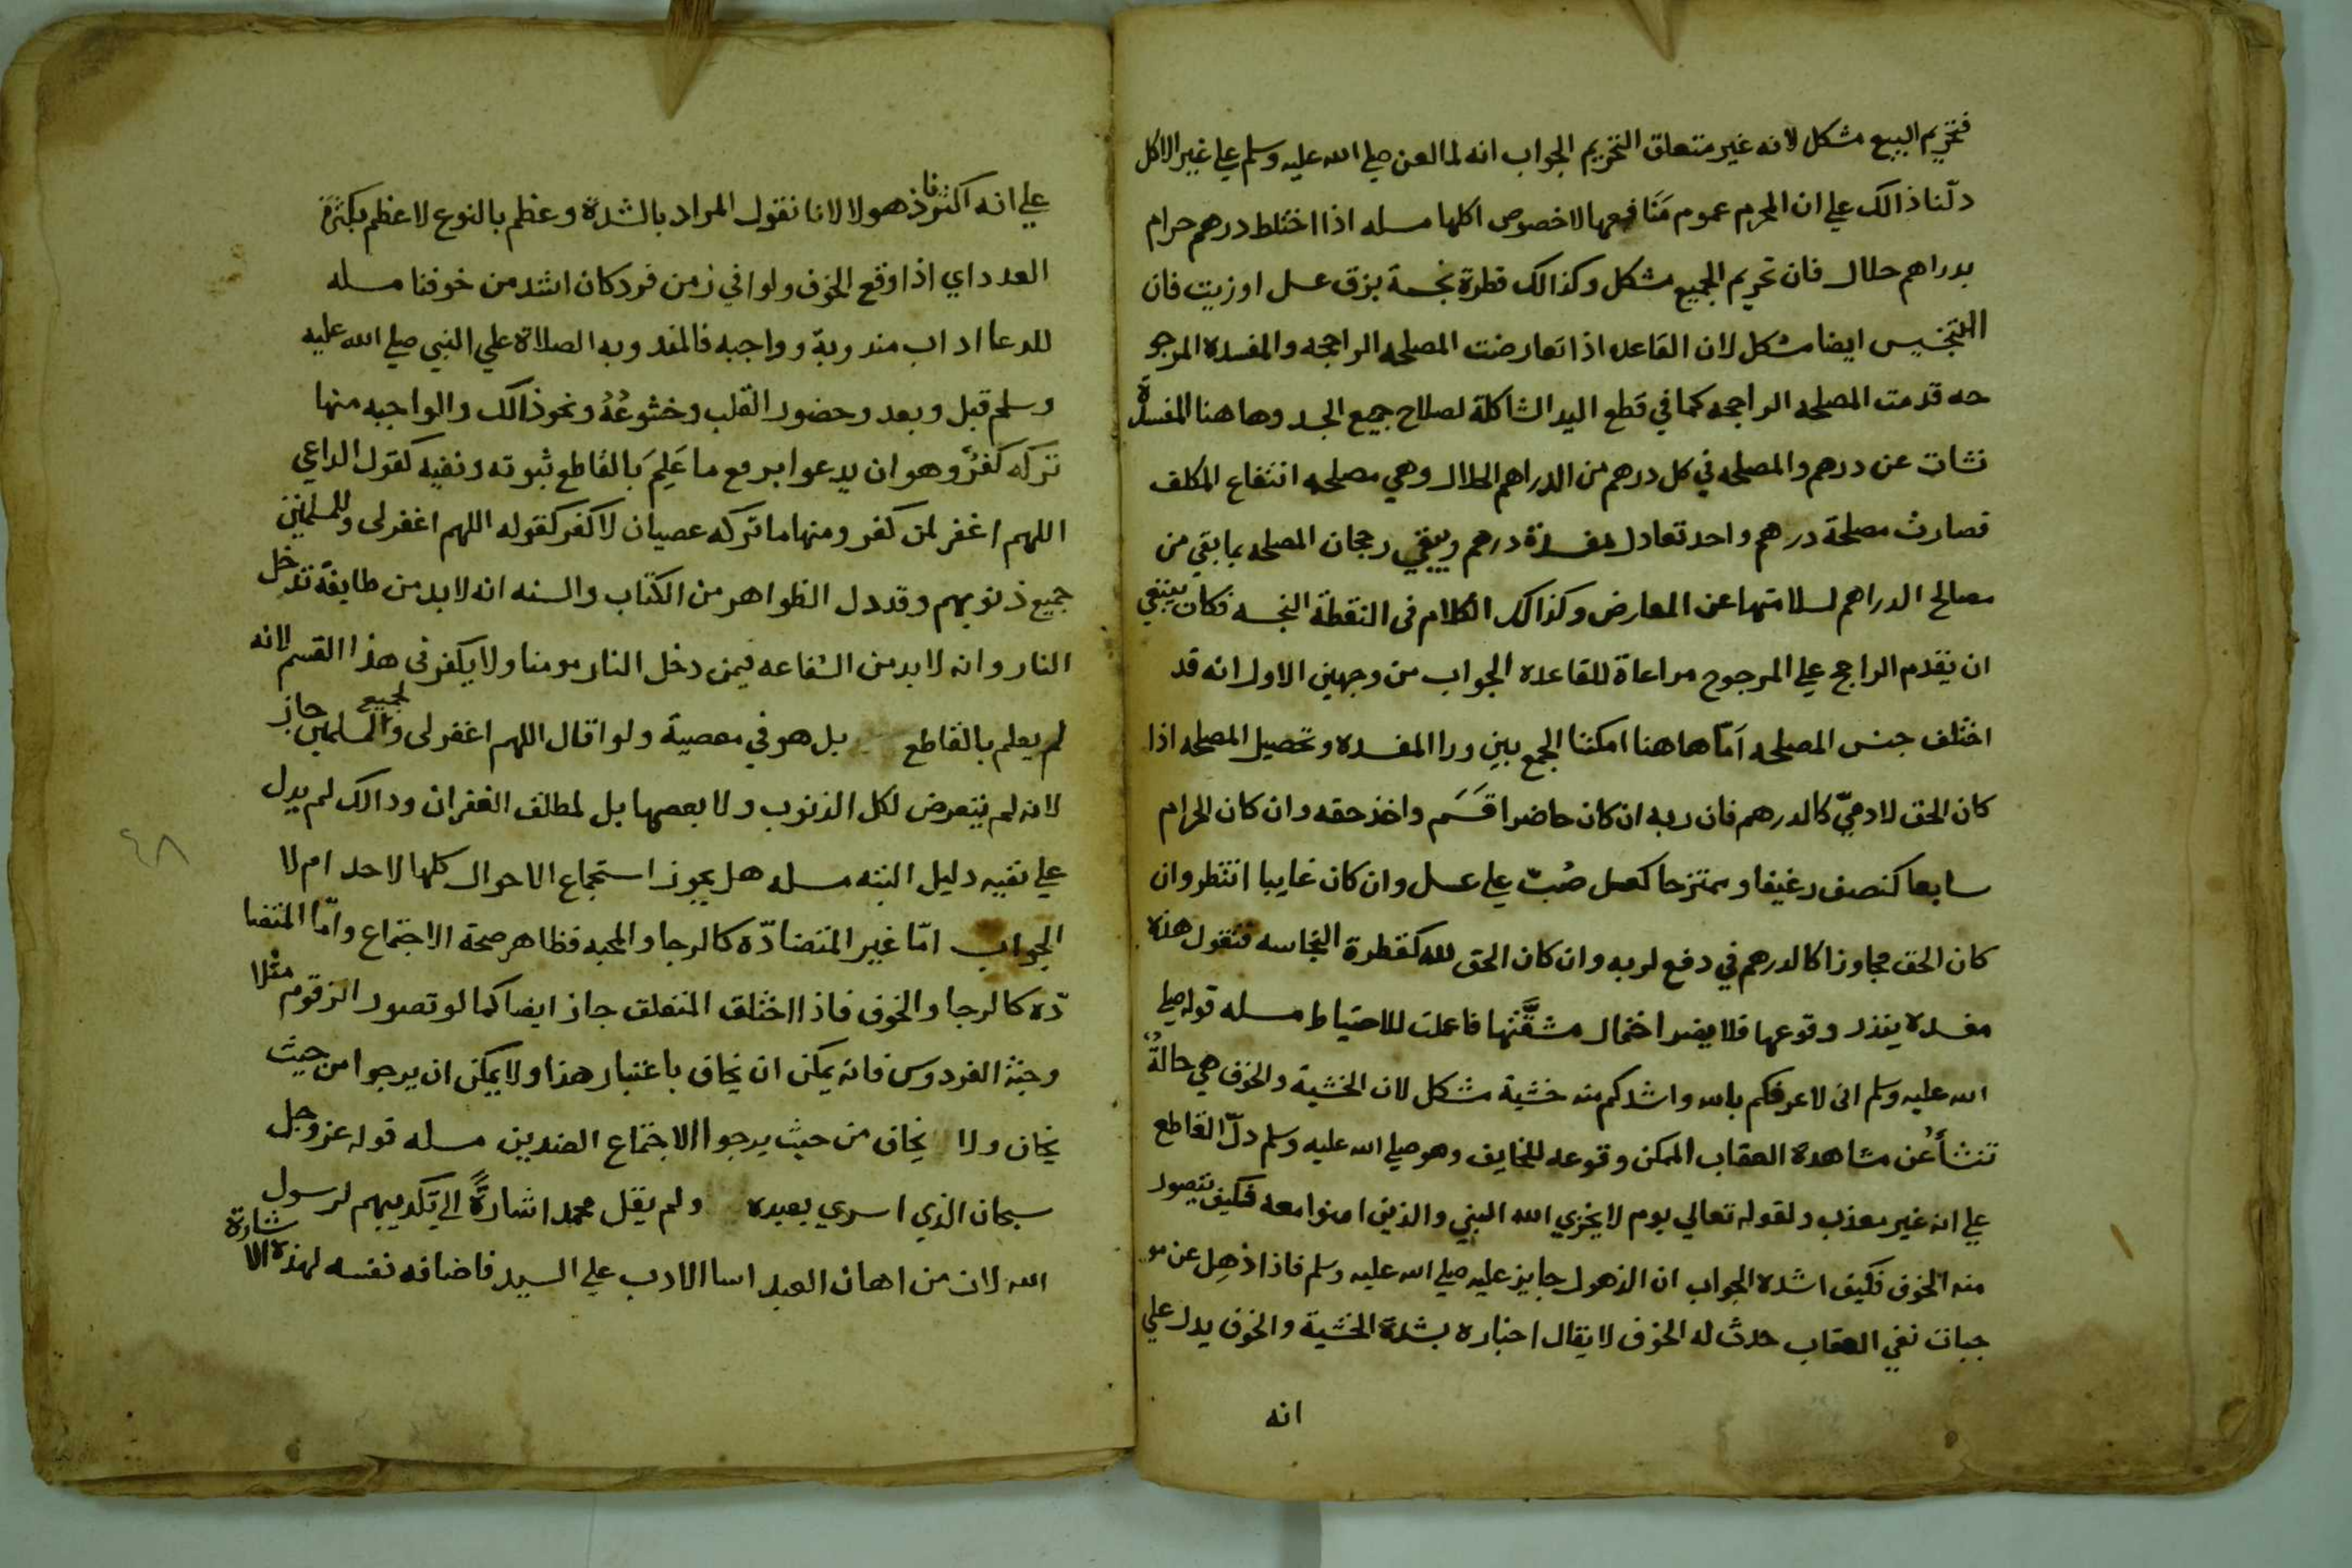 فتحريم البيع مشكل لانه غير متعلق التحريم الجواب انه لما لعن صلي الله عليه وسلم علي غير الاكل
دلّنا ذالك علي ان المحرم عموم مَنَافعها لا خصوص اكلها مسله اذا اختلط درهم حرام
بدراهم حلال فان تحريم الجميع مشكل وكذالك قطرة نجسة بزق عسل او زيت فان
التنجيس ايضا مشكل لان القاعده اذا تعارضت المصلحه الراجحه والمفسده المرجو
حه قدمت المصلحه الراجحه كما في قطع اليد الشاكلة لصلاح جميع الجسد وهاهنا المفسدة
نشات عن درهم والمصلحه في كل درهم من الدراهم الحلال وهي مصلحه انتفاع المكلف
فصارت مصلحة درهم واحد تعادل مفسدة درهم ويبقي رجحان المصلحه بما بقي من
مصالح الدراهم لسلامتها عن المعارض وكذالك الكلام في النقطة النجسه فكان ينبغي
ان يقدم الراجح علي المرجوح مراعاة للقاعده الجواب من وجهين الاول انه قد
اختلف جنس المصلحه اَمّا هاهنا امكننا الجمع بين درا المفسده وتحصيل المصلحه اذا
كان الحق لادميّ كالدرهم فان ربه ان كان حاضرا قَسَم واخذ حقه وان كان الحرام
سابعا كنصف رغيف او ممتزحا كعسل صُبّ علي عسل وان كان غايبا انتظر وان
كان الحق مجاوزا كالدرهم في دفع لربه وان كان الحق لله كقطرة النجاسه فنقول هذه
مفسده يتعذر وقوعها فلا يضر احتمال مشقَّتها فاعملت للاحتياط مسله قوله صلي
الله عليه وسلم اني لاعرفكم بالله واشدكم منه خشية مشكل لان الخشية والخوف هي حالةٌ
تنشأ عن مشاهدة العقاب الممكن وقوعه للخايف وهو صلي الله عليه وسلم دلّ القاطع
علي انه غير معذب ولقوله تعالي يوم لا يخزي الله النبي والذين امنوا معه فكيف يتصور
منه الخوف فكيف اشده الجواب ان الذهول جايز عليه صلي الله عليه وسلم فاذا ذهِل عن مو
جبات نفي العقاب حدث له الخوف لا يقال اخباره بشدة الخشية والخوف يدل علي
انه
علي انه اكثر ذهولا لانا نقول المراد بالشدة وعظم بالنوع لا عظم بكثرة
العدد اي اذا وقع الخوف ولوا في زمن فرد كان اشد من خوفنا مسله
للدعا اداب مندوبة وواجبه فالمندوبه الصلاة علي النبي صلي الله عليه
وسلم قبل وبعد وحضور القلب وخشوعُهُ ونحو ذالك والواجبه منها
تركه كفرٌ وهو ان يدعوا برفع ما عَلِمَ بالقاطع ثبوته ونفيه كقول الداعي
اللهم اغفر لمن كفر ومنها ما تركه عصيان لا كفر كقوله اللهم اغفر لى وللمسلمين
جميع ذنوبهم وقد دل الظواهر من الكتاب والسنه انه لا بد من طايفة تدخل
النار وانه لا بد من الشفاعه فيمن دخل النار مومنا ولا يكفر في هذا القسم لانه
لم يعلم بالقاطع بل هو في معصية ولوا قال اللهم اغفر لى ولجميع المسلمين جاز
لانه لم يتعرض لكل الذنوب ولا بعصها بل لمطلق الغفران وذالك لم يدل
علي نفيه دليل البته مسله هل يجوز استجماع الاحوال كلها لاحد ام لا
الجواب امّا غير المتضادّه كالرجا والمحبه فظاهر صحة الاجتماع وامّا المتضا
دّه كالرجا والخوف فاذا اختلف المتعلق جاز ايضا كما لو تصور الزقوم مثلا
وجنة الفردوس فانه يمكن ان يخاف باعتبار هذا ولا يمكن ان يرجوا من حيث
يخاف ولا يخاف من حيث يرجوا الاجتماع الضدين مسله قوله عز وجل
سبحان الذي اسري بعبده ولم يقل محمد اشارةً الي تكديبهم لرسول
الله لان من اهان العبد اسا الادب علي السيد فاضافه نفسه لهذه الاشارة
٤٨